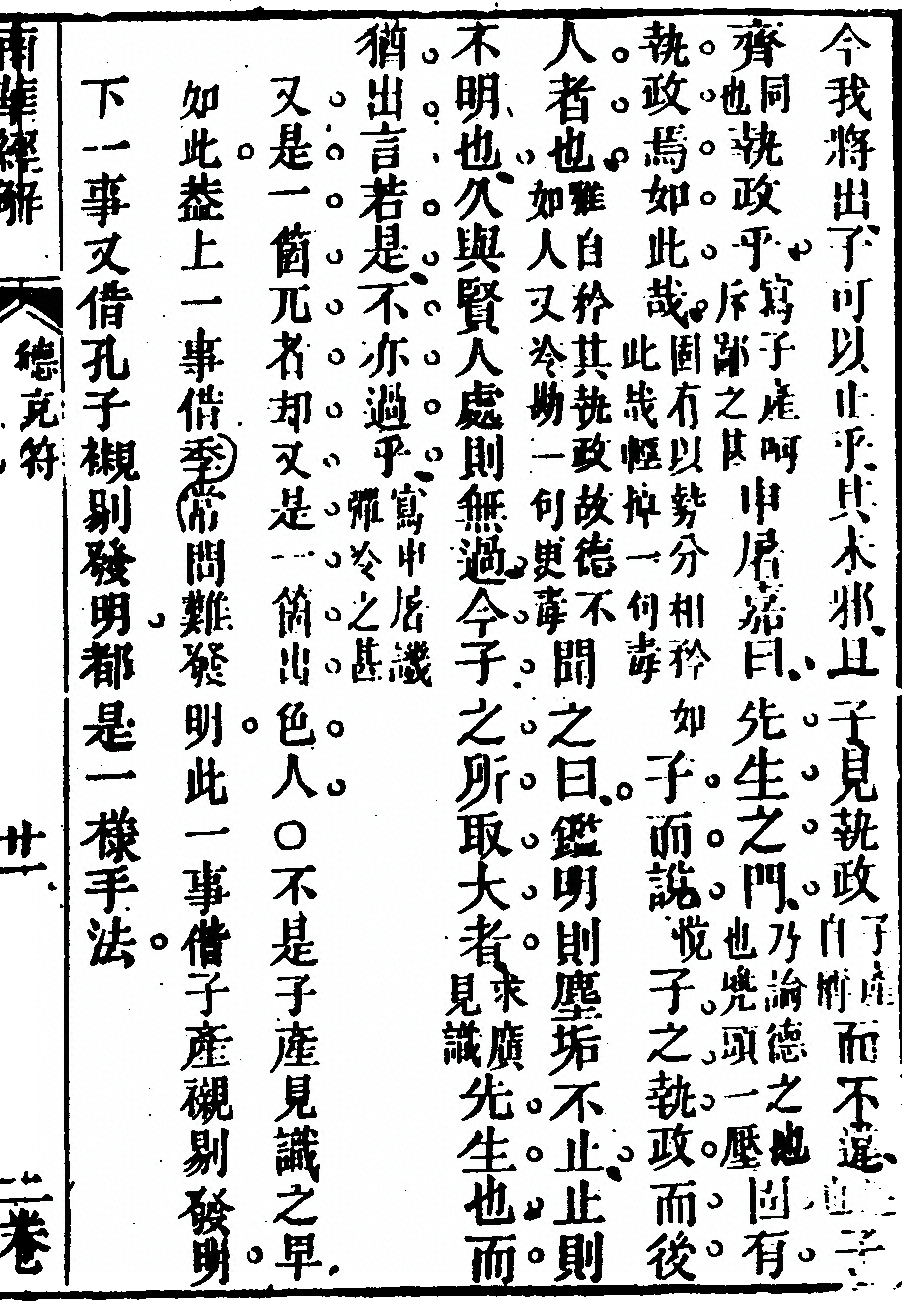 今我將出子可以止乎其未邪且子見執政子產自謂而不違也子
齊同也執政乎寫子產呵斥鄙之甚申屠嘉曰先生之門乃論德之地也兜頭一壓固有
執政焉如此哉固有以勢分相矜如此哉輕掉一句毒子而說悅子之執政而後
人者也雖自矜其執政故德不如人又冷勘一句更毒聞之曰鑑明則塵垢不止止則
不明也久與賢人處則無過今子之所取大者求廣見識先生也而
猶出言若是不亦過乎寫申屠譏彈冷之甚
又是一箇兀者却又是一箇出色人○不是子產見識之早
如此葢上一事借季常問難發明此一事借子產襯剔發明
下一事又借孔子襯剔發明都是一樣手法
南華經解 德充符 廿一 二卷